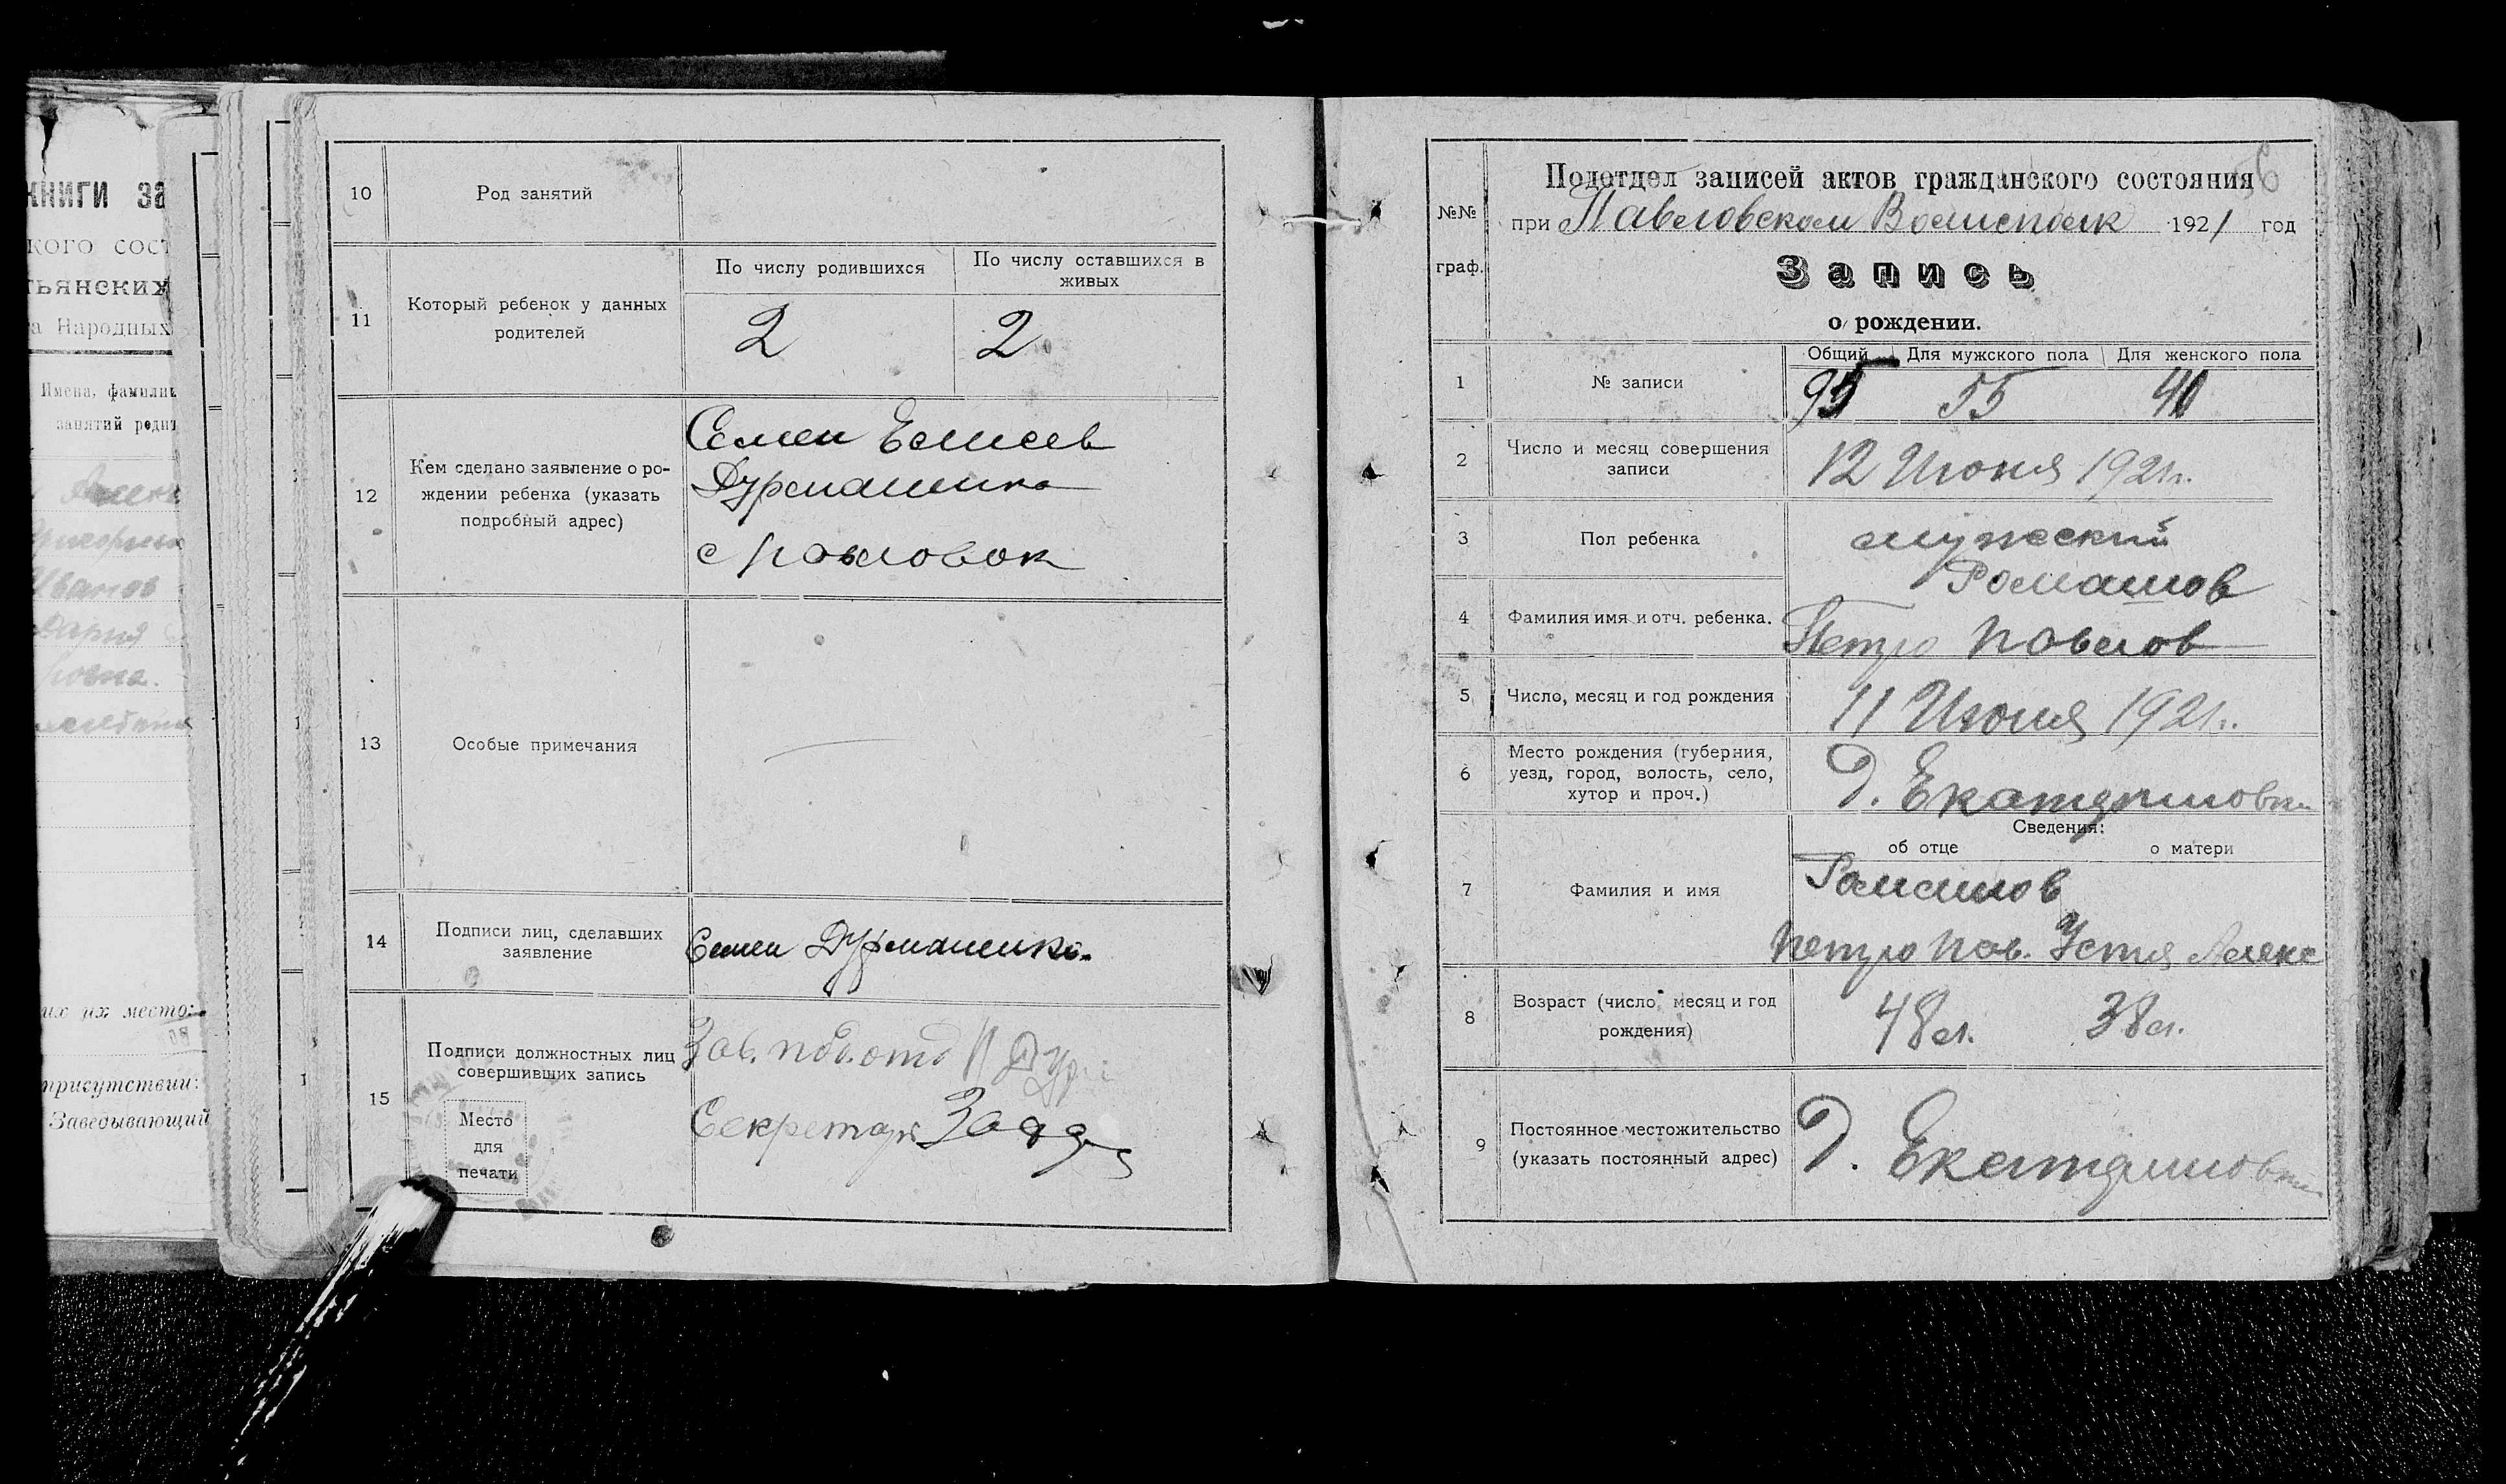 книги за
кого сост
тьянских
а Народных
Имена, фамили
занятий роди
Иванов
Дария
их их место:
присутствии:
Заведывающий
10 Род занятий
11 Который ребенок у данных
родителей
По числу родившихся
По числу оставшихся в
живых
2 2
12 Кем сделано заявление о ро-
ждении ребенка (указать
подробный адрес)
Семен Елисеев
Дурманенко
с Павловок
13 Особые примечания
14 Подписи лиц, сделавших
заявление
Семен Дурманенко
15 Подписи должностных лиц
совершивших запись
Место
для
печати
Зав. под. отд
Секретарь
№№
граф.
Подотдел записей актов гражданского состояния
при Павловском Волисполк 1921 год
Запись
о рождении.
1 № записи
Общий Для мужского пола Для женского пола
95 55 40
2 Число и месяц совершения
записи
12 Июня 1921 г.
3 Пол ребенка
мужский
4 Фамилия имя и отч. ребенка.
Ромашов
Петро Павлов
5 Число, месяц и год рождения
11 Июня 1921 г.
6 Место рождения (губерния,
уезд, город, волость, село,
хутор и проч.)
Д. Екатериновки
Сведения:
об отце о матери
7 Фамилия и имя
Ромашов
Петро Пав. Устя Алекс
8 Возраст (число, месяц и год
рождения)
48 л. 38 л.
9 Постоянное местожительство
(указать постоянный адрес)
Д. Екатериновки